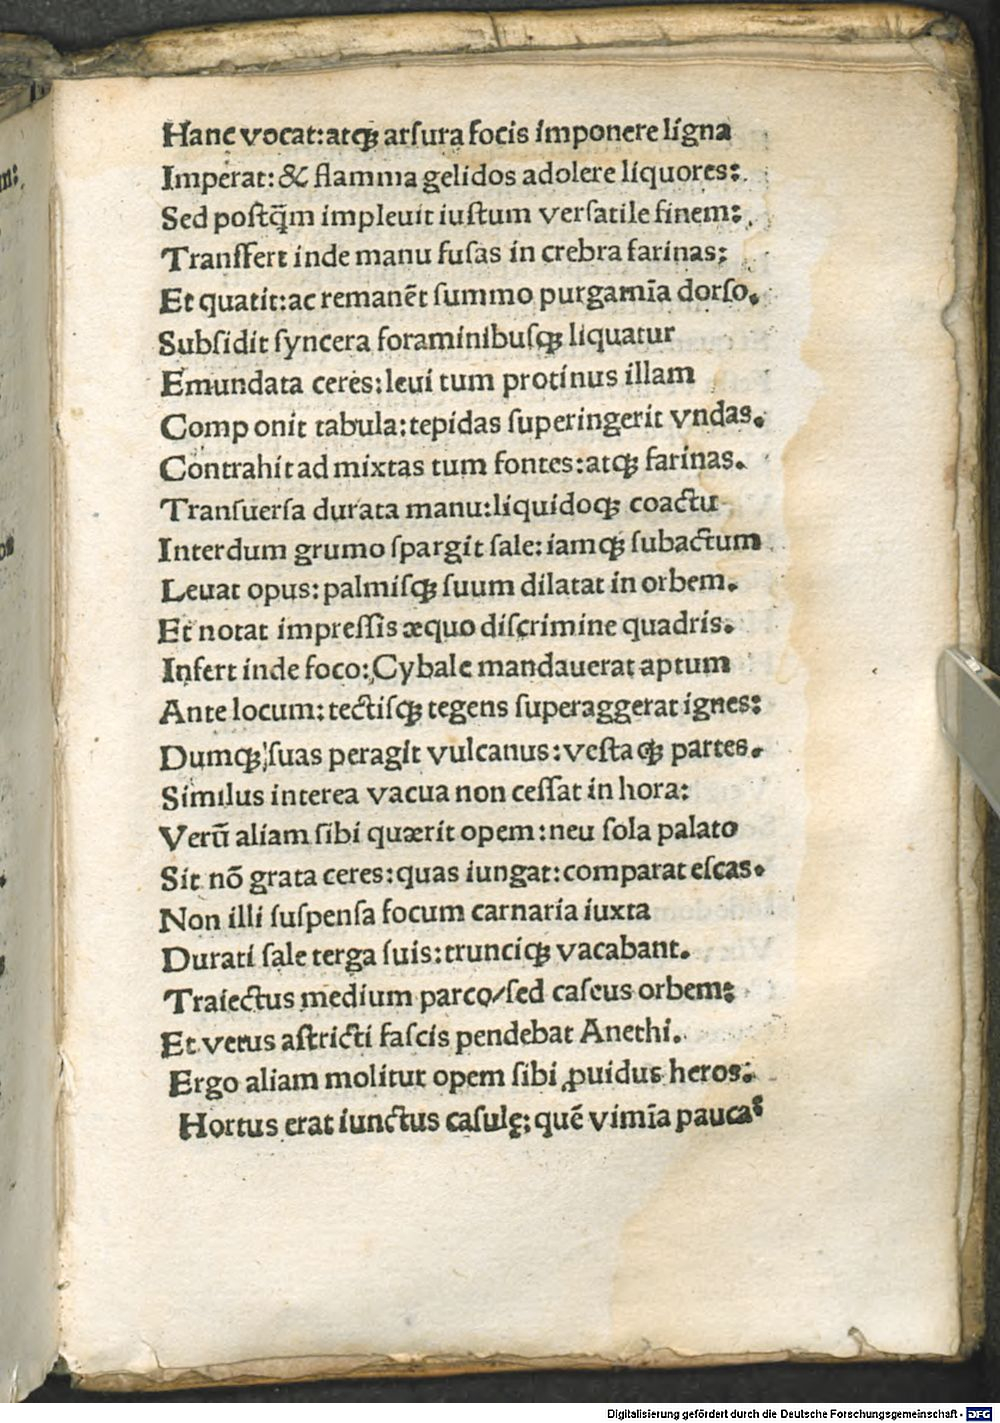 Hanc vocat:atqꝫ arſura focis imponere ligna
Imperat:& flamma gelidos adolere liquores:
Sed poſtq̄m impleuit iuſtum verſatile finem:
Tranſfert inde manu fuſas in crebra farinas:
Et quatit:ac remanēt ſummo purgamīa dorſo.
Subſidit ſyncera foraminibuſqꝫ liquatur
Emundata ceres:leui tum protinus illam
Comp onit tabula:tepidas ſuperingerit vndas.
Contrahit ad mixtas tum fontes:atqꝫ farinas.
Tranſuerſa durata manu:liquidoqꝫ coactu
Interdum grumo ſpargit ſale:iamqꝫ ſubactum
Leuat opus:palmiſqꝫ ſuum dilatat in orbem.
Et notat impreſſis æquo diſcrimine quadris.
Infert inde foco:Cybale mandauerat aptum
Ante locum:tectiſqꝫ tegens ſuperaggerat ignes:
Dumqꝫ ſuas peragit vulcanus:veſtaqꝫ partes.
Similus interea vacua non ceſſat in hora:
Verū aliam ſibi quærit opem:neu ſola palato
Sit nō grata ceres:quas iungat:comparat eſcas.
Non illi ſuſpenſa focum carnaria iuxta
Durati ſale terga ſuis:trunciqꝫ vacabant.
Traiectus medium parco/ſed caſeus orbem:
Et vetus aſtricti faſcis pendebat Anethi.
Ergo aliam molitur opem ſibi ꝓuidus heros:
Hortus erat iunctus caſulę:quē vimīa pauca
Digitalisierung gefördert durch die Deutsche Forschungsgemeinschaft - DFG